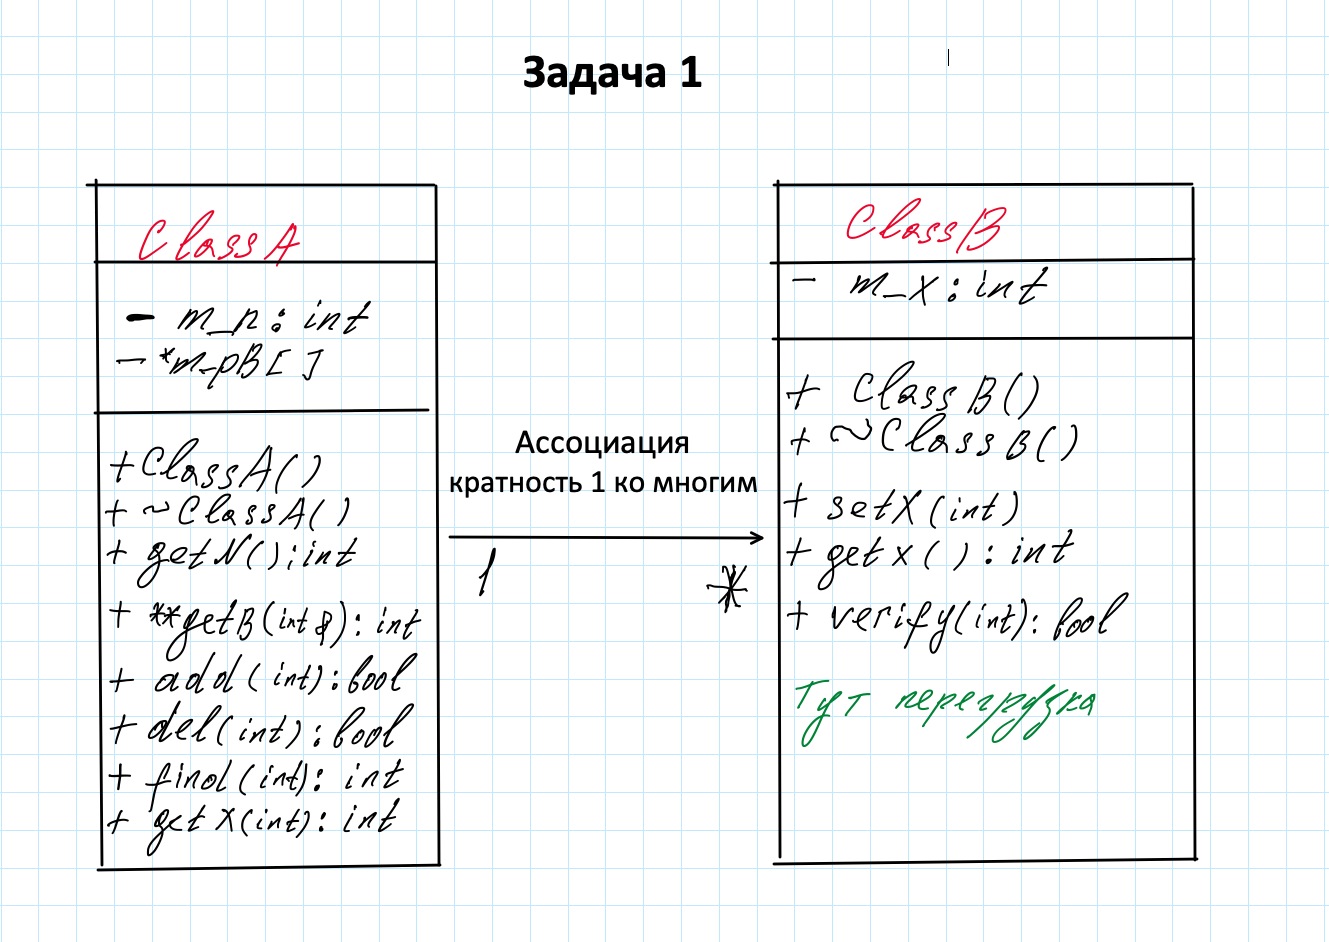 Задача 1
ClassA
- m_n: int
- *m_pB[]
+ClassA()
+ ~ClassA()
+ getN();int
+ **getB(int&): int
+ add(int):bool
+ del(int):bool
+ find(int): int
+ getX(int): int
Ассоциация
кратность 1 ко многим
1
*
ClassB
- m_x: int
+ ClassB()
+ ~ClassB()
+ setX(int)
+ getx(): int
+ verify(int): bool
Тут перегрузка